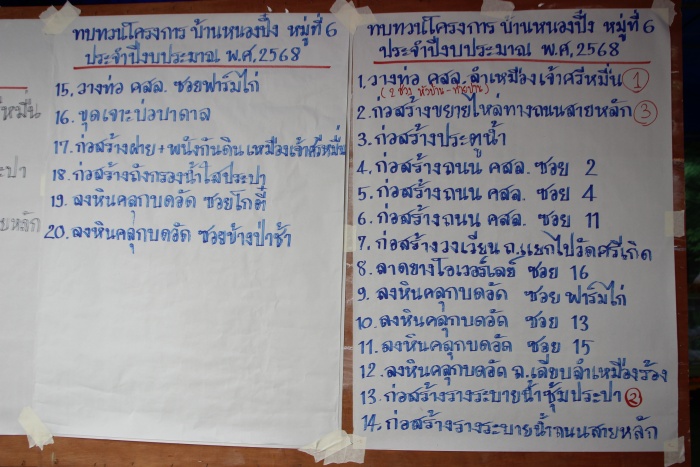 หมื่น
ะปา
ยหลัก
ทบทวนโครงการ บ้านหนองปึ๋ง หมู่ที่ 6
ประจำปีงบประมาณ พ.ศ,2568
15. วางท่อ คสล. ซอยฟาร์มไก่
16. ขุดเจาะบ่อบาดาล
17. ก่อสร้างฝาย+พนังกันดิน เหมืองเจ้าศรีหมื่น
18. ก่อสร้างถังกรองน้ำใสประปา
19. ลงหินคลุกบดอัด ซอยโกตี๋
20. ลงหินคลุกบดอัด ซอยข้างป่าช้า
ทบทวนโครงการ บ้านหนองปึ๋ง หมู่ที่ 6
ประจำปีงบประมาณ พ.ศ,2568
1. วางท่อ คสล. ลำเหมืองเจ้าศรีหมื่น 1
(2 ช่วง หัวบ้าน-ท้ายบ้าน)
2. ก่อสร้างขยายไหล่ทางถนนสายหลัก 3
3. ก่อสร้างประตูน้ำ
4. ก่อสร้างถนน คสล. ซอย 2
5. ก่อสร้างถนน คสล. ซอย 4
6. ก่อสร้างถนน คสล. ซอย 11
7. ก่อสร้างวงเวียน ถ.แยกไปวัดศรีเกิด
8. ลาดยางโอเวอร์เลย์ ซอย 16
9. ลงหินคลุกบดอัด ซอย ฟาร์มไก่
10. ลงหินคลุกบดอัด ซอย 13
11. ลงหินคลุกบดอัด ซอย 15
12. ลงหินคลุกบดอัด ถ.เลียบลำเหมืองร้อง
13. ก่อสร้างรางระบายน้ำซุ้มประปา 2
14. ก่อสร้างรางระบายน้ำถนนสายหลัก